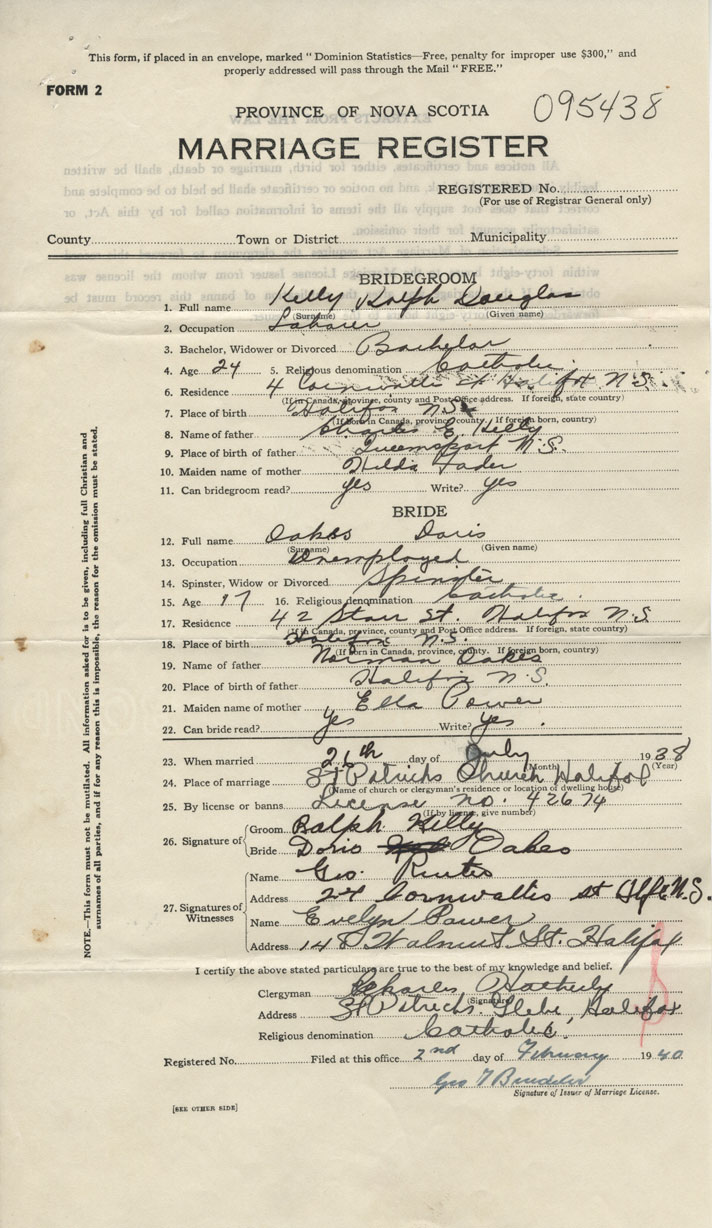 This form, if placed in an envelope, marked "Dominion Statistics—Free, penalty for improper use $300," and
properly addressed will pass through the Mail "FREE."
FORM 2
PROVINCE OF NOVA SCOTIA 095438
MARRIAGE REGISTER
REGISTERED No.
(For use of Registrar General only)
County Town or District Municipality
BRIDEGROOM
1. Full name Kelly Ralph Douglas
(Surname) (Given name)
2. Occupation Laborer
3. Bachelor, Widower or Divorced Bachelor
4. Age 24 5. Religious denomination Catholic
6. Residence 4 Cornwallis St Halifax N.S.
(If in Canada, province, county and Post Office address. If foreign, state country)
7. Place of birth Halifax N.S.
(If born in Canada, province, county. If foreign born, country)
8. Name of father Charles E Kelly
9. Place of birth of father Queensport N.S.
10. Maiden name of mother Hilda Fader
11. Can bridegroom read? yes Write? yes
BRIDE
12. Full name Oakes Doris
(Surname) (Given name)
13. Occupation Unemployed
14. Spinster, Widow or Divorced Spinster
15. Age 17 16. Religious denomination Catholic
17. Residence 42 Starr St. Halifax N.S.
(If in Canada, province, county and Post Office address. If foreign, state country)
18. Place of birth Halifax N.S.
(If born in Canada, province, county. If foreign born, country)
19. Name of father Norman Oakes
20. Place of birth of father Halifax N.S.
21. Maiden name of mother Ella Power
22. Can bride read? yes Write? yes.
23. When married 26th day of July 1938
(Month) (Year)
24. Place of marriage St Patricks Church Halifax
(Name of church or clergyman's residence or location of dwelling house)
25. By license or banns License no. 42674
(If by license, give number)
26. Signature of
Groom Ralph Kelly
Bride Doris Oakes
27. Signatures of Witnesses
Name Geo.
Address 24 Cornwallis st Hfx N.S.
Name Evelyn Power
Address 148 Walnut St. Halifax
I certify the above stated particulars are true to the best of my knowledge and belief.
Clergyman Charles
(Signature)
Address St Patricks Glebe, Halifax
Religious denomination Catholic
Registered No. Filed at this office 2nd day of February 1940
Geo
Signature of Issuer of Marriage License.
[SEE OTHER SIDE]
NOTE.—This form must not be mutilated. All information asked for is to be given, including full Christian and
surnames of all parties, and if for any reason this is impossible, the reason for the omission must be stated.